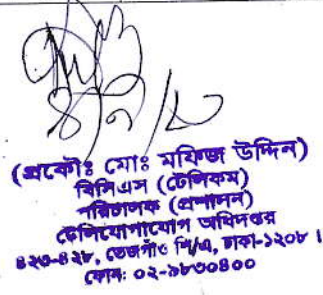 (প্রকৌঃ মোঃ মফিজ উদ্দিন)
বিসিএস (টেলিকম)
পরিচালক (প্রশাসন)
টেলিযোগাযোগ অধিদপ্তর
৪২৩-৪২৮, তেজগাঁও শি/এ, ঢাকা-১২০৮।
ফোন: ০২-৯৮৩০৪০০